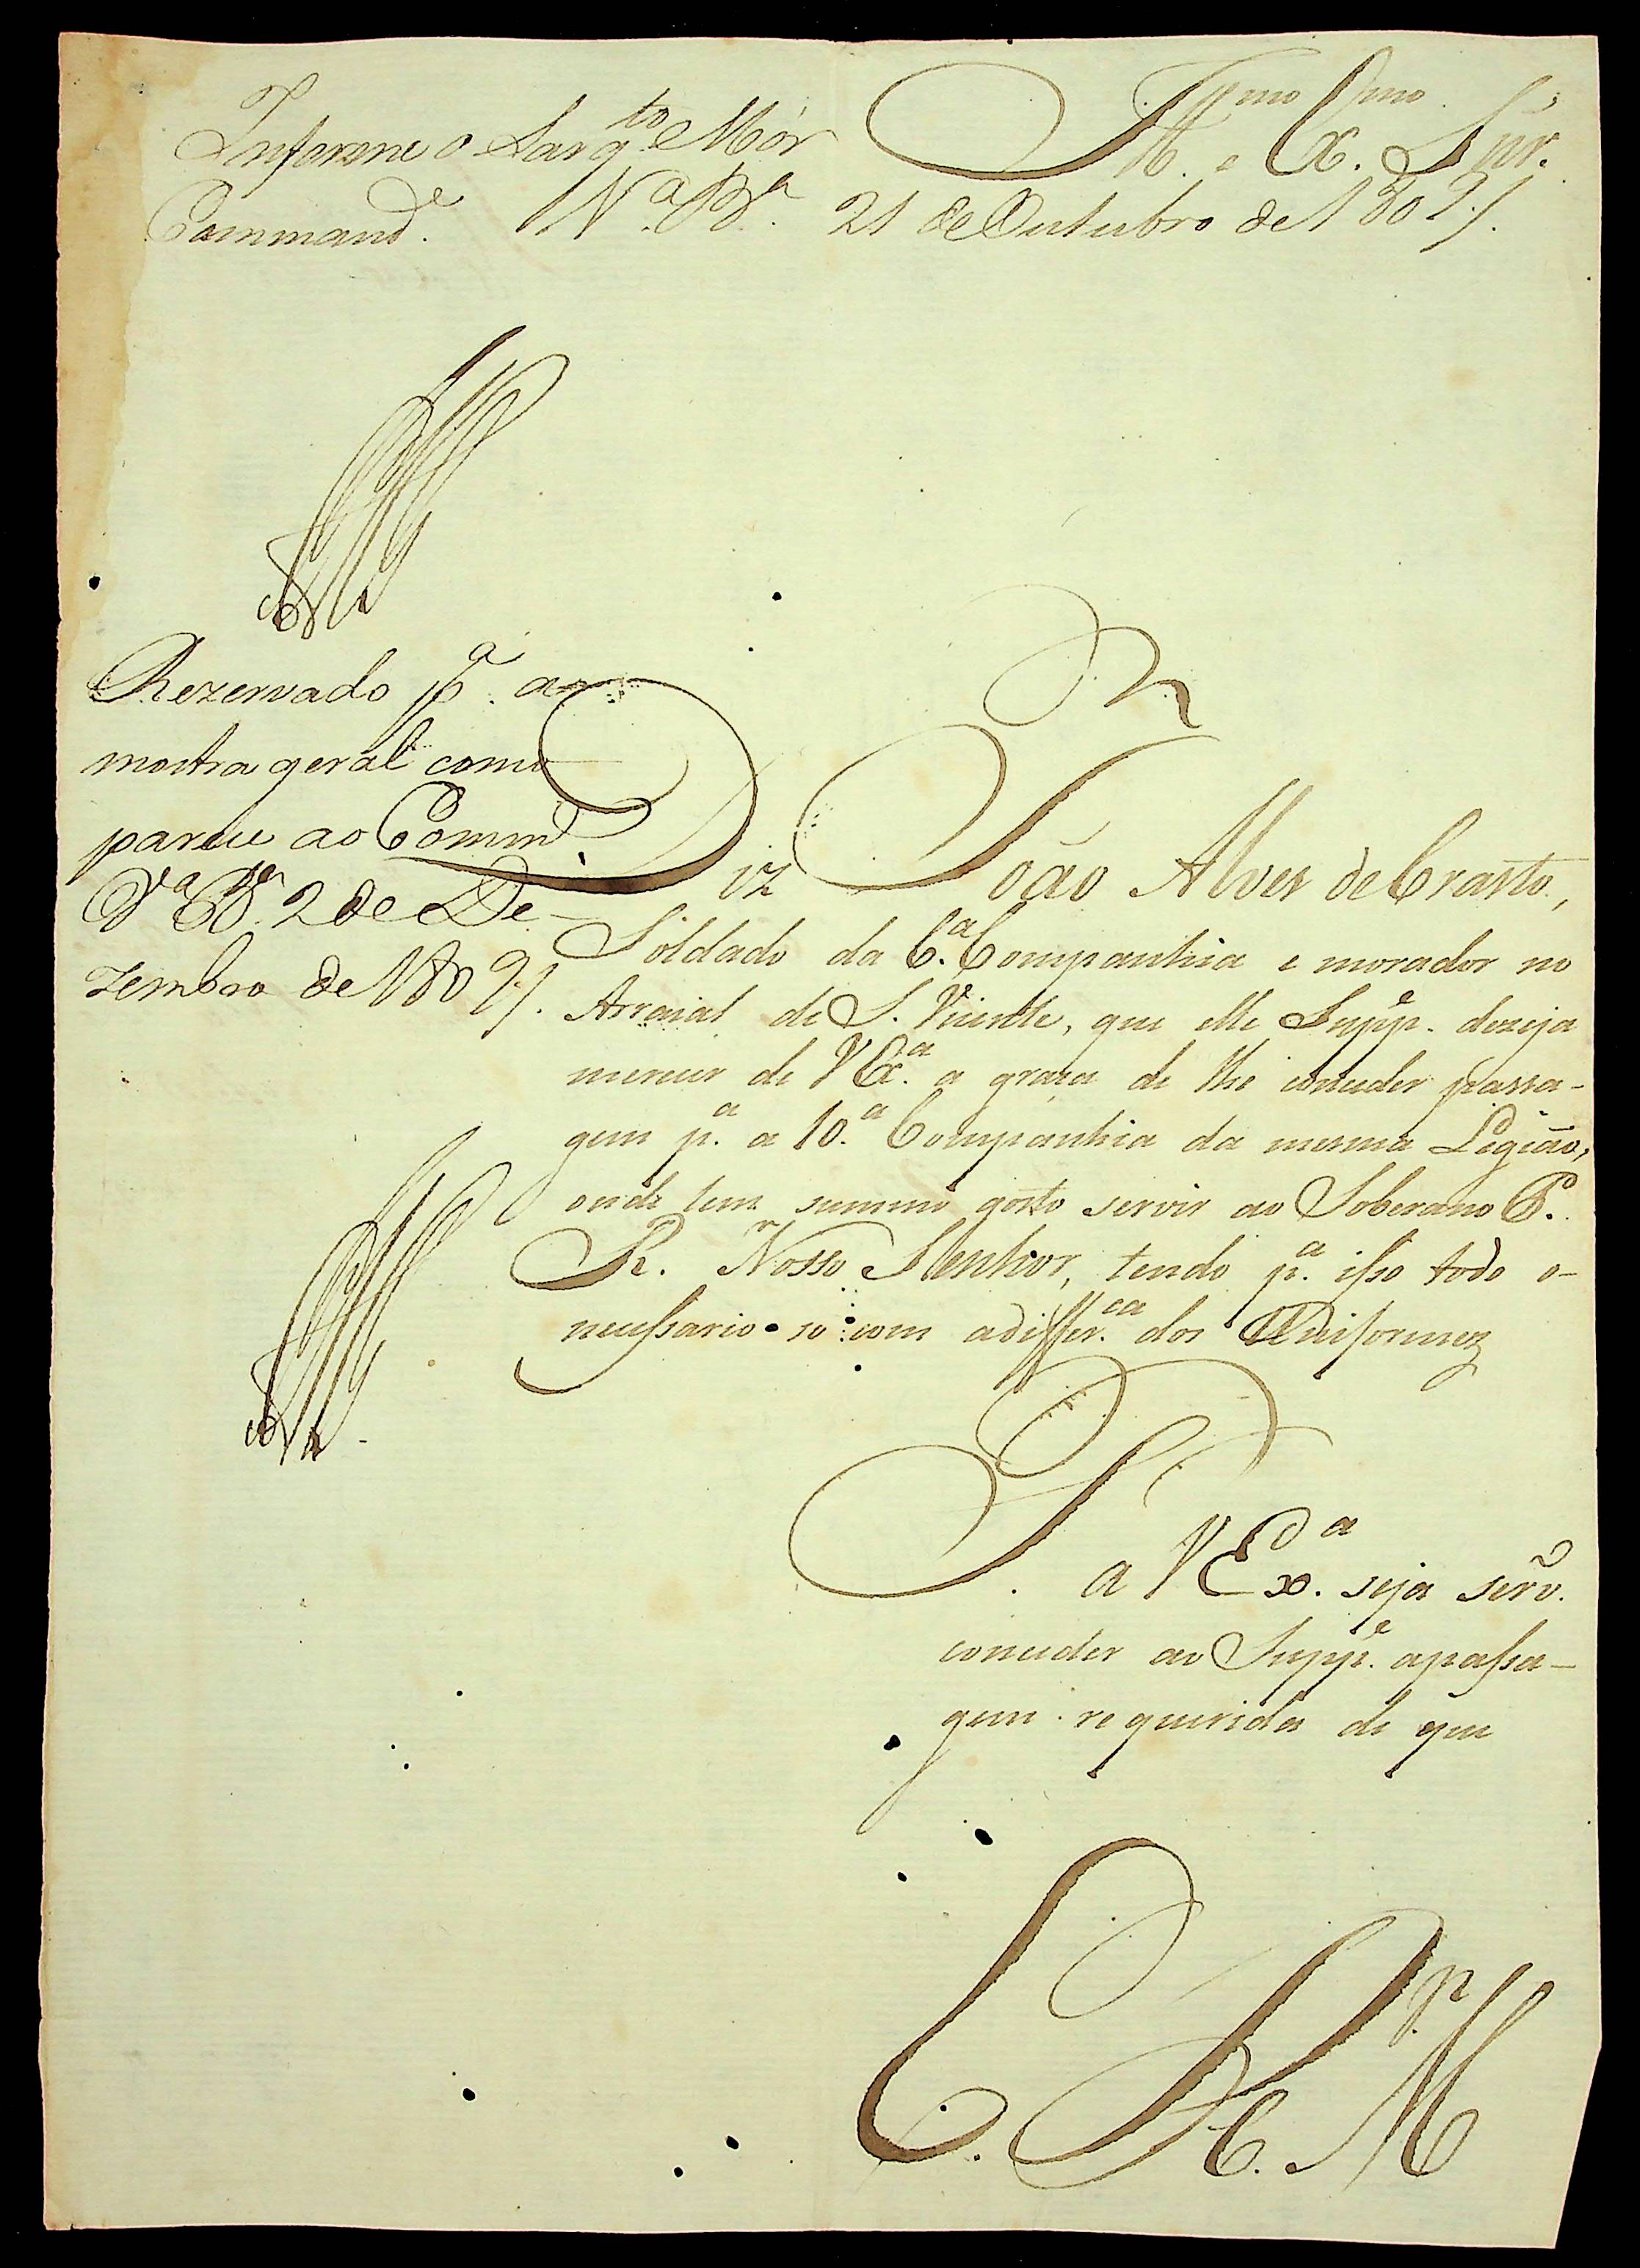 Informe o Sarg.to Mór
Command.e V.a B.a 21 de Outubro de 1809,,
Ill.mo e Ex.mo Snr.
Rezervado p.a a
mostra geral como
pareu ao Comm.e
V.a B.a 2 de De-
zembro de 1809,,
Diz João Alves de Crasto,
Soldado da 6.a Companhia e morador no
Arraial de S. Vicente, que elle Supp.e dezeja
merecer de VEx.a a graça de lhe conceder passa-
gem p.a a 10.a Companhia da mesma Legião,
onde tem summo gosto servir ao Soberano P.
R. Nosso Senhor, tendo p.a isso todo o-
necessario so com a differ.ca dos Uniformez
P. a VEx.a seja serv.o
conceder ao Supp.e a passa-
gem requerida de que
E. R. M.ce